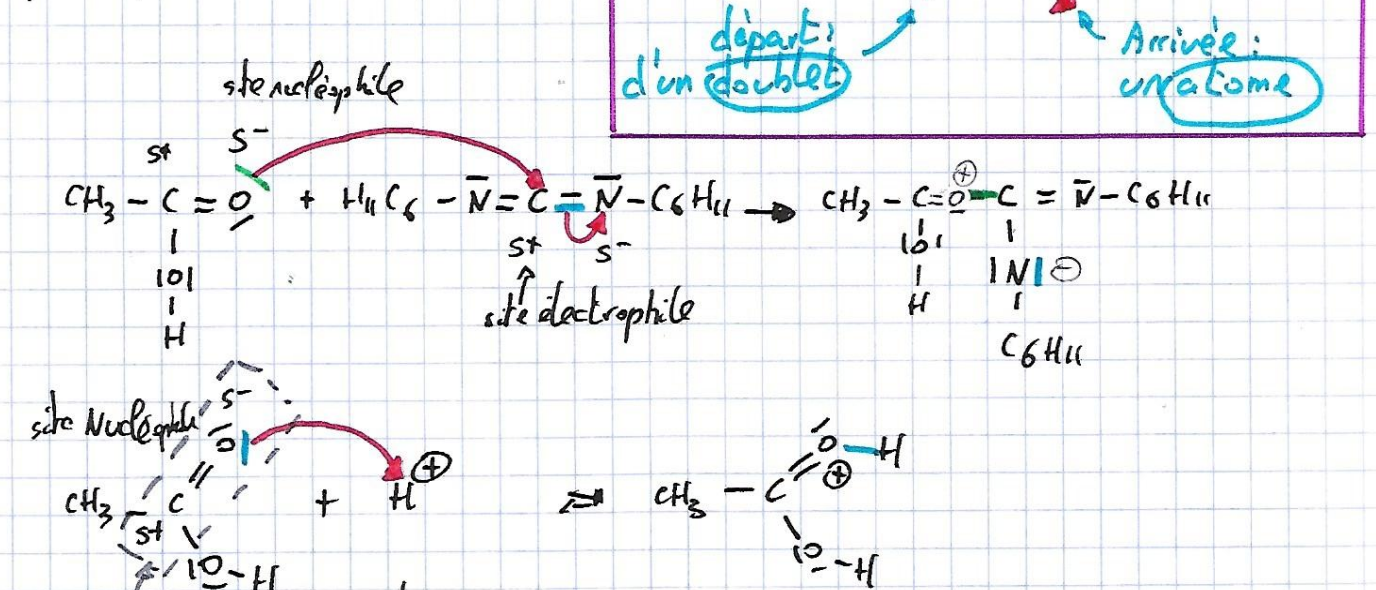 départ:
d'un doublet
Arrivée:
un atome
site nucléophile
δ+ δ-
CH3 - C = O + H11C6 - N = C = N - C6H11 → CH3 - C = O ⊕ - C = N - C6H11
δ+ δ-
|O| |O| |N| ⊖
H H
C6H11
site électrophile
site Nucléophile
δ-
O O - H
CH3 - C + H ⊕ ⇌ CH3 - C ⊕
δ+
|O - H |O - H